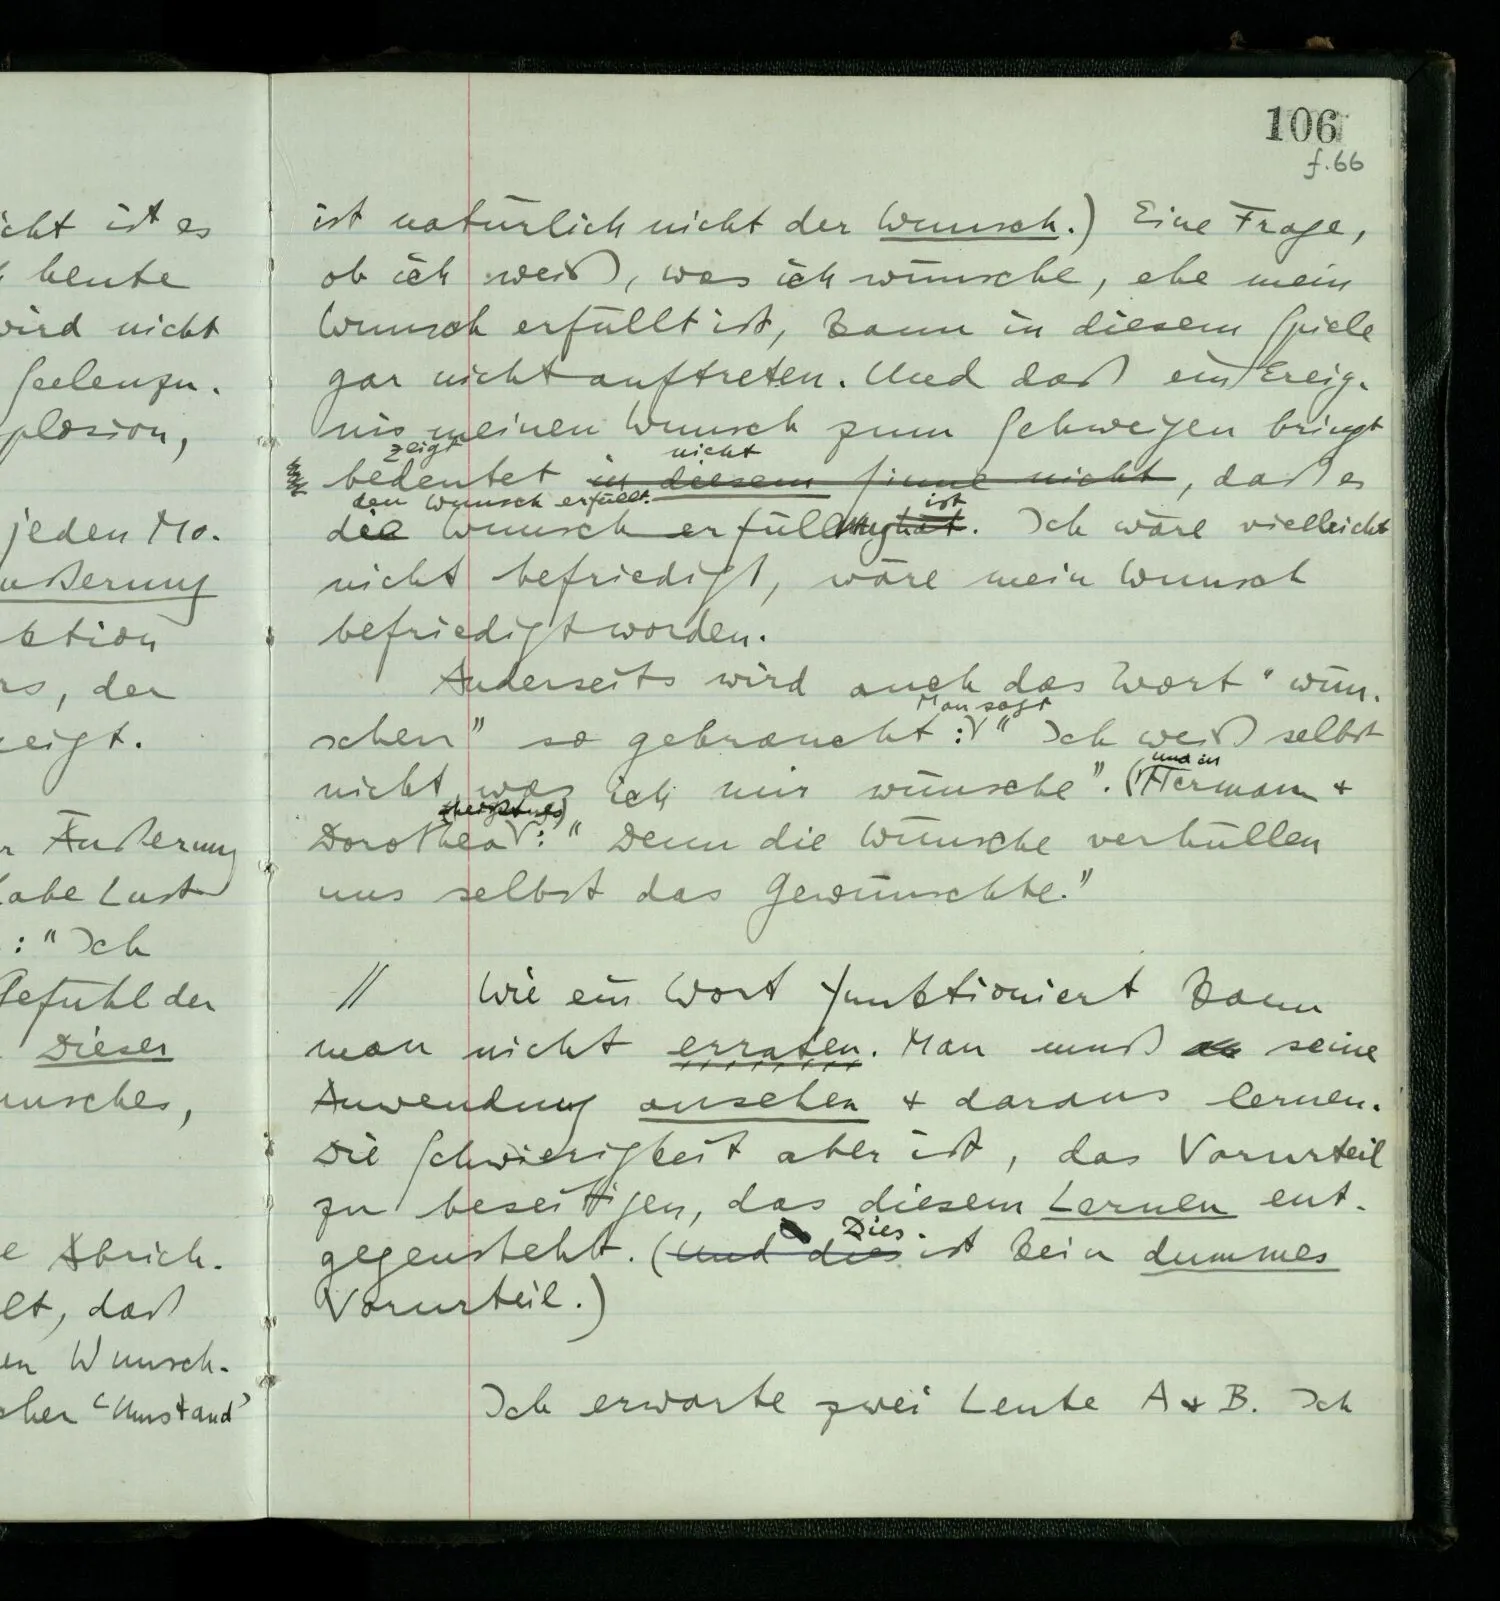 106
f.66
icht ist es
heute
wird nicht
Seelenzu-
plosion,
jeden Mo-
ußerung
ktion
rs, der
zeigt.
r Äußerung
habe Lust
: "Ich
Gefühl der
Dieser
unsches,
e Abrich-
lt, daß
en Wunsch-
cher 'Umstand'
ist natürlich nicht der Wunsch.) Eine Frage,
ob ich weiß, was ich wünsche, ehe mein
Wunsch erfüllt ist, kann in diesem Spiele
gar nicht auftreten. Und daß ein Ereig-
nis meinen Wunsch zum Schweigen bringt
zeigt nicht
bedeutet in diesem Sinne nicht, daß es
den Wunsch erfüllt. ist
die Wunscherfüllung hat. Ich wäre vielleicht
nicht befriedigt, wäre mein Wunsch
befriedigt worden.
Anderseits wird auch das Wort "wün-
Man sagt
schen" so gebraucht: "Ich weiß selbst
und in
nicht, was ich mir wünsche". (Hermann +
(heißt es)
Dorothea: "Denn die Wünsche verhüllen
uns selbst das Gewünschte."
// Wie ein Wort funktioniert kann
man nicht erraten. Man muß seine
Anwendung ansehen + daraus lernen.
Die Schwierigkeit aber ist, das Vorurteil
zu beseitigen, das diesem Lernen ent-
Dies
gegensteht. (Und dies ist kein dummes
Vorurteil.)
Ich erwarte zwei Leute A + B. Ich